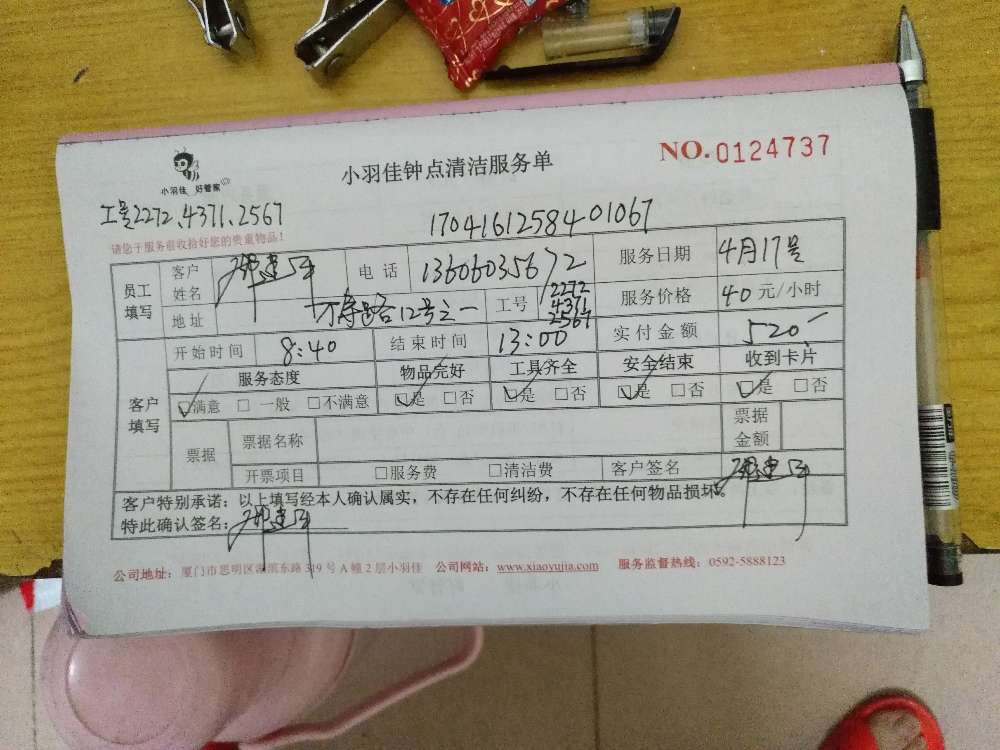 小羽佳 好管家
小羽佳钟点清洁服务单
NO.0124737
工号2272、4371、2567
1704161258401067
请您于服务前收拾好您的贵重物品！
员工填写 客户姓名 电话 13606035672 服务日期 4月17号
地址 万寿路12号之一 工号 2272 4371 2567 服务价格 40元/小时
客户填写 开始时间 8:40 结束时间 13:00 实付金额 520
服务态度 物品完好 工具齐全 安全结束 收到卡片
☑满意 □一般 □不满意 ☑是 □否 ☑是 □否 ☑是 □否 ☑是 □否
票据 票据名称 票据金额
开票项目 □服务费 □清洁费 客户签名
客户特别承诺：以上填写经本人确认属实，不存在任何纠纷，不存在任何物品损坏。
特此确认签名：
公司地址：厦门市思明区湖滨东路319号A幢2层小羽佳 公司网站：www.xiaoyujia.com 服务监督热线：0592-5888123